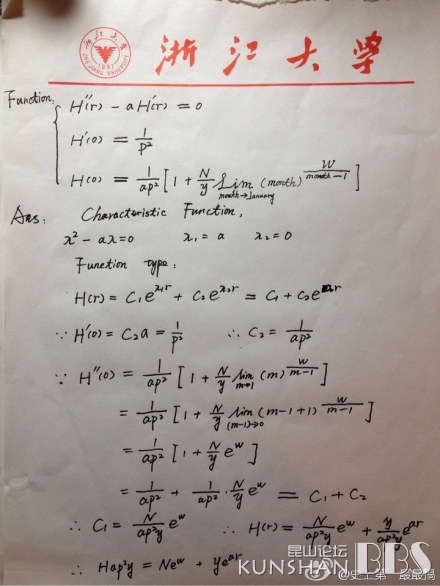 浙江大学
ZHEJIANG UNIVERSITY
1897
Function:
H''(r) - aH'(r) = 0
H'(0) = 1/p²
H(0) = 1/ap² [1 + N/y lim month→January (month)^(w/(month-1))]
Ans: Characteristic Function,
x² - ax = 0 x₁ = a x₂ = 0
Function type:
H(r) = C₁e^(x₁r) + C₂e^(x₂r) = C₁ + C₂e^(ar)
∵ H'(0) = C₂a = 1/p² ∴ C₂ = 1/ap²
∵ H''(0) = 1/ap² [1 + N/y lim m→1 (m)^(w/(m-1))]
= 1/ap² [1 + N/y lim (m-1)→0 (m-1+1)^(w/(m-1))]
= 1/ap² [1 + N/y e^w]
= 1/ap² + 1/ap² · N/y e^w = C₁ + C₂
∴ C₁ = N/ap²y e^w ∴ H(r) = N/ap²y e^w + y/ap²y e^(ar)
∴ Hap²y = Ne^w + ye^(ar)
昆山论坛
KUNSHAN BBS
@史上第一最最搞